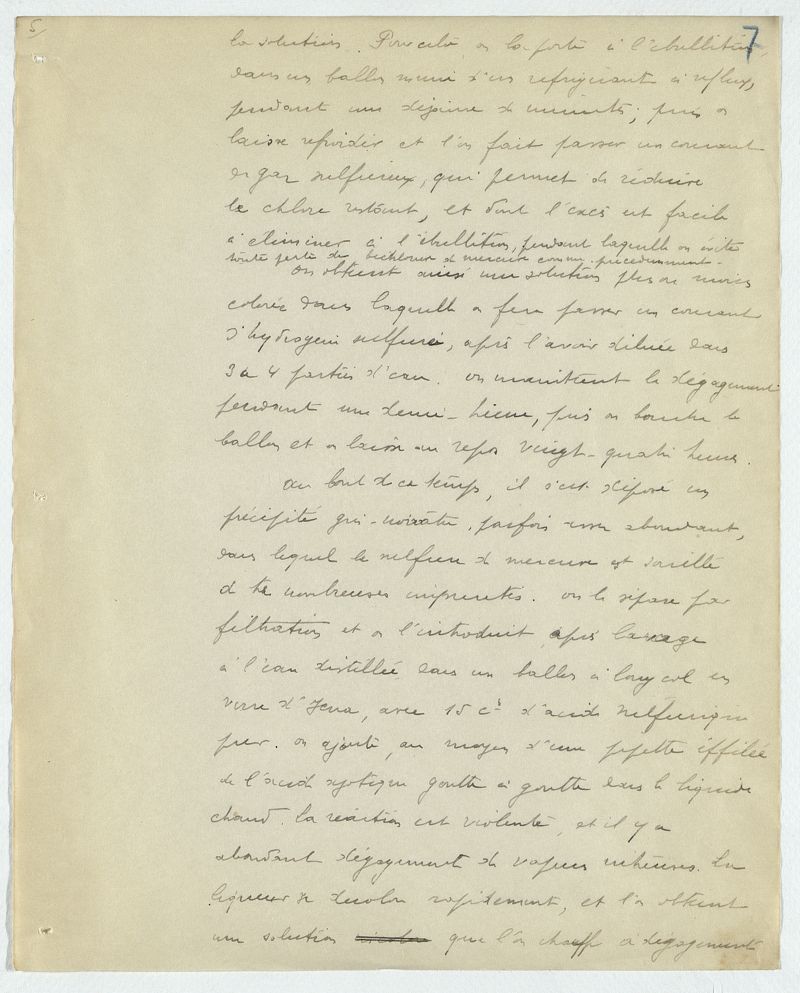 5/
7
la solution. Pour cela on la porte à l'ébullition,
dans un ballon muni d'un réfrigérant à reflux,
pendant une dizaine de minutes; puis on
laisse refroidir et l'on fait passer un courant
de gaz sulfureux, qui permet de réduire
le chlore restant, et dont l'excès est facile
à éliminer à l'ébullition, pendant laquelle on évite
toute perte de bichlorure de mercure comme précédemment.
On obtient ainsi une solution plus ou moins
colorée dans laquelle on fera passer un courant
d'hydrogène sulfuré, après l'avoir diluée dans
3 à 4 parties d'eau. On maintient le dégagement
pendant une demi-heure, puis on bouche le
ballon et on laisse au repos vingt-quatre heures.
Au bout de ce temps, il s'est déposé un
précipité gris-noirâtre, parfois assez abondant,
dans lequel le sulfure de mercure est souillé
de nombreuses impuretés. On le sépare par
filtration et on l'introduit après lavage
à l'eau distillée dans un ballon à long col en
verre d'Iena, avec 15 cc d'acide sulfurique
pur. On ajoute, au moyen d'une pipette effilée
de l'acide azotique goutte à goutte dans le liquide
chaud. La réaction est violente, et il y a
abondant dégagement de vapeurs nitreuses. La
liqueur se décolore rapidement, et l'on obtient
une solution que l'on chauffe à dégagement